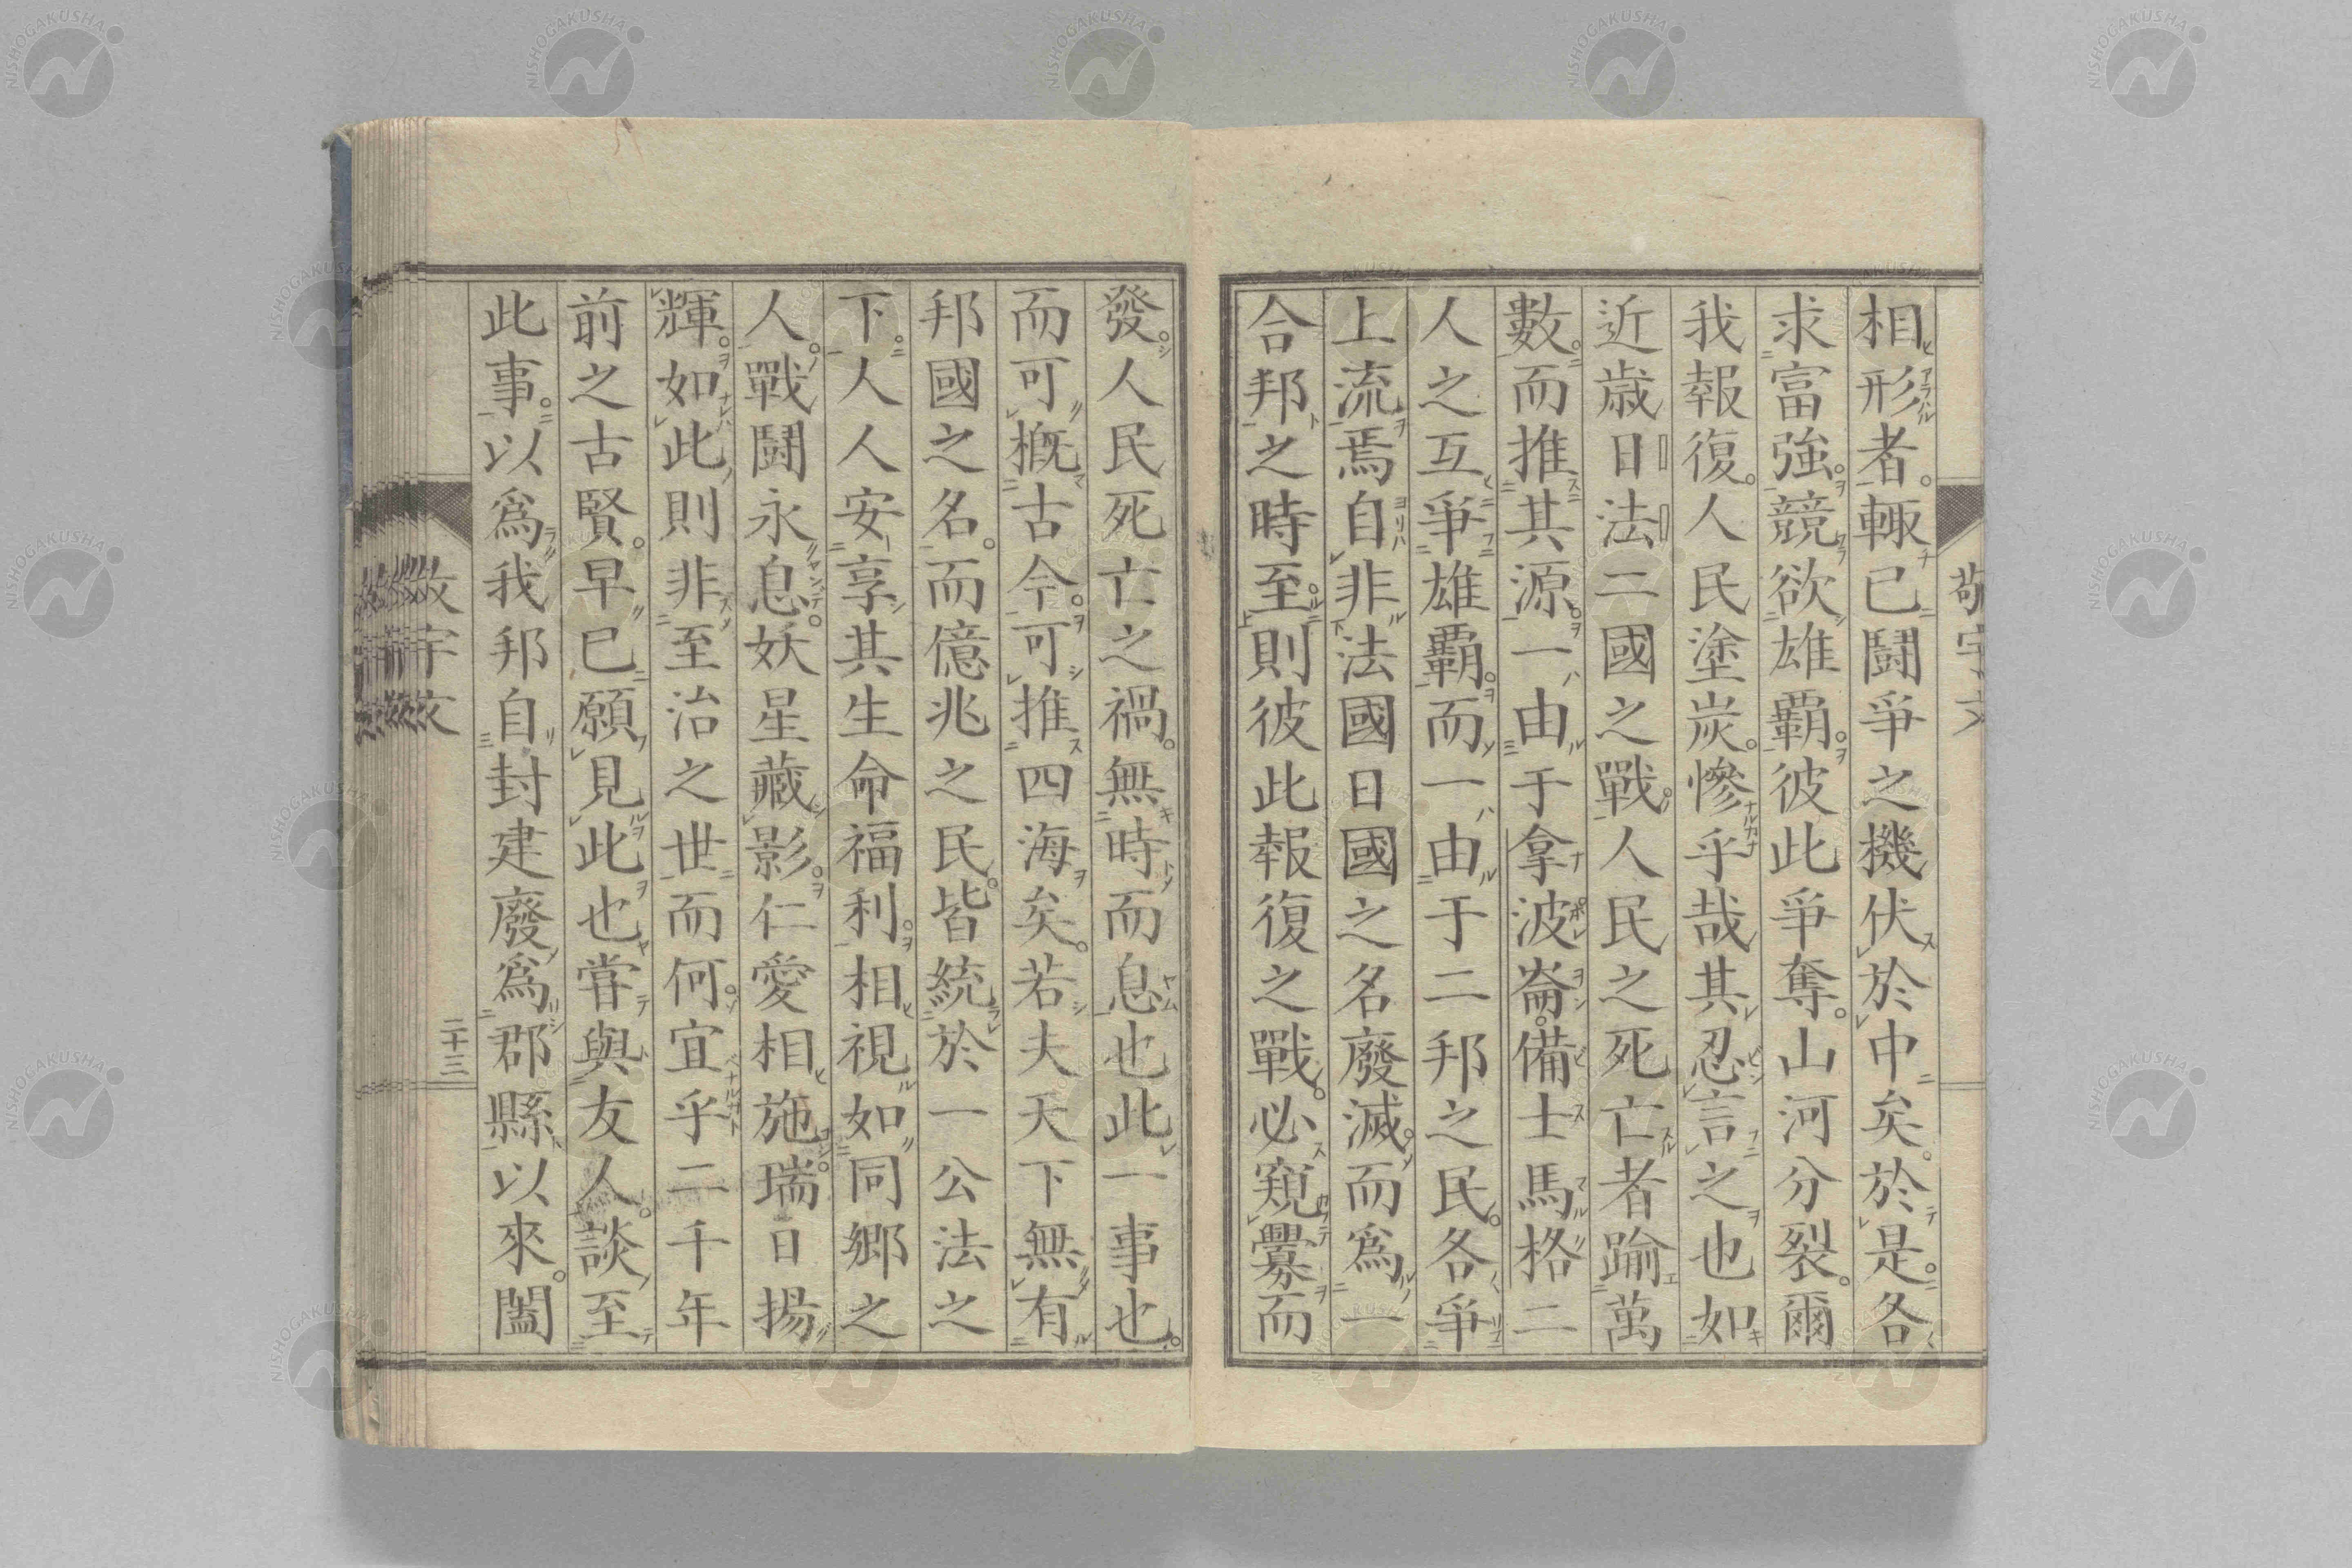 相形者輙已鬪爭之機伏於中矣於是各
求富強競欲雄覇彼此爭奪山河分裂爾
我報復人民塗炭慘乎哉其忍言之也如
近歳日法二國之戰人民之死亡者踰萬
數而推其源一由于拿波崙備士馬格二
人之互爭雄覇而一由于二邦之民各爭
上流焉自非法國日國之名廢滅而爲一
合邦之時至則彼此報復之戰必窺釁而
發人民死亡之禍無時而息也此一事也
而可概古今可推四海矣若夫天下無有
邦國之名而億兆之民皆統於一公法之
下人人安享其生命福利相視如同鄉之
人戰鬪永息妖星藏影仁愛相施瑞日揚
輝如此則非至治之世而何宜乎二千年
前之古賢早已願見此也嘗與友人談至
此事以爲我邦自封建廢爲郡縣以來闔
敬宇文
二十三
NISHOGAKUSHA